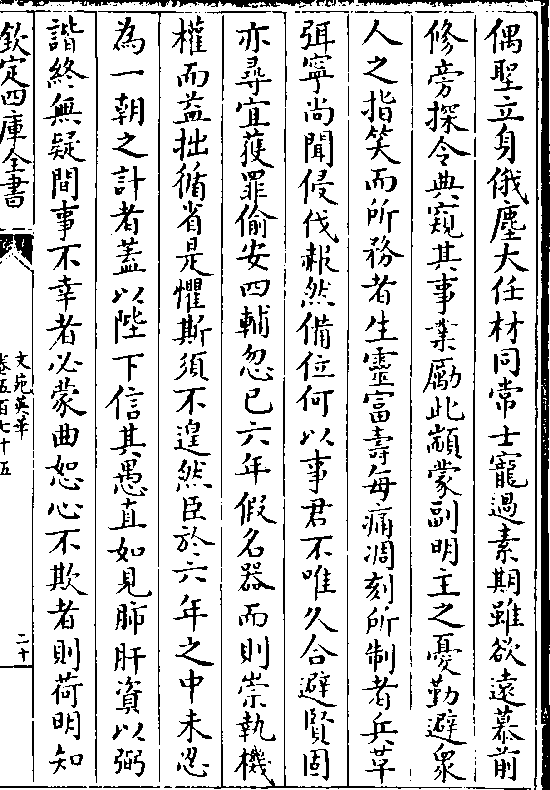 偶聖立身俄塵大任材同常士寵過素期雖欲遠慕前
修旁探令典窺其事業勵此顓蒙副明主之憂勤避衆
人之指笑而所務者生靈富壽每痛凋刻所制者兵革
弭寧尚聞侵伐赧然備位何以事君不唯久合避賢固
亦尋宜獲罪偷安四輔忽已六年假名器而則崇執機
權而益拙循省是懼斯須不遑然臣於六年之中未忍
為一朝之計者蓋以陛下信其愚直如見肺肝資以弼
諧終無疑間事不幸者必蒙曲恕心不欺者則荷明知
欽定四庫全書
文苑英華
卷五百七十五
二十